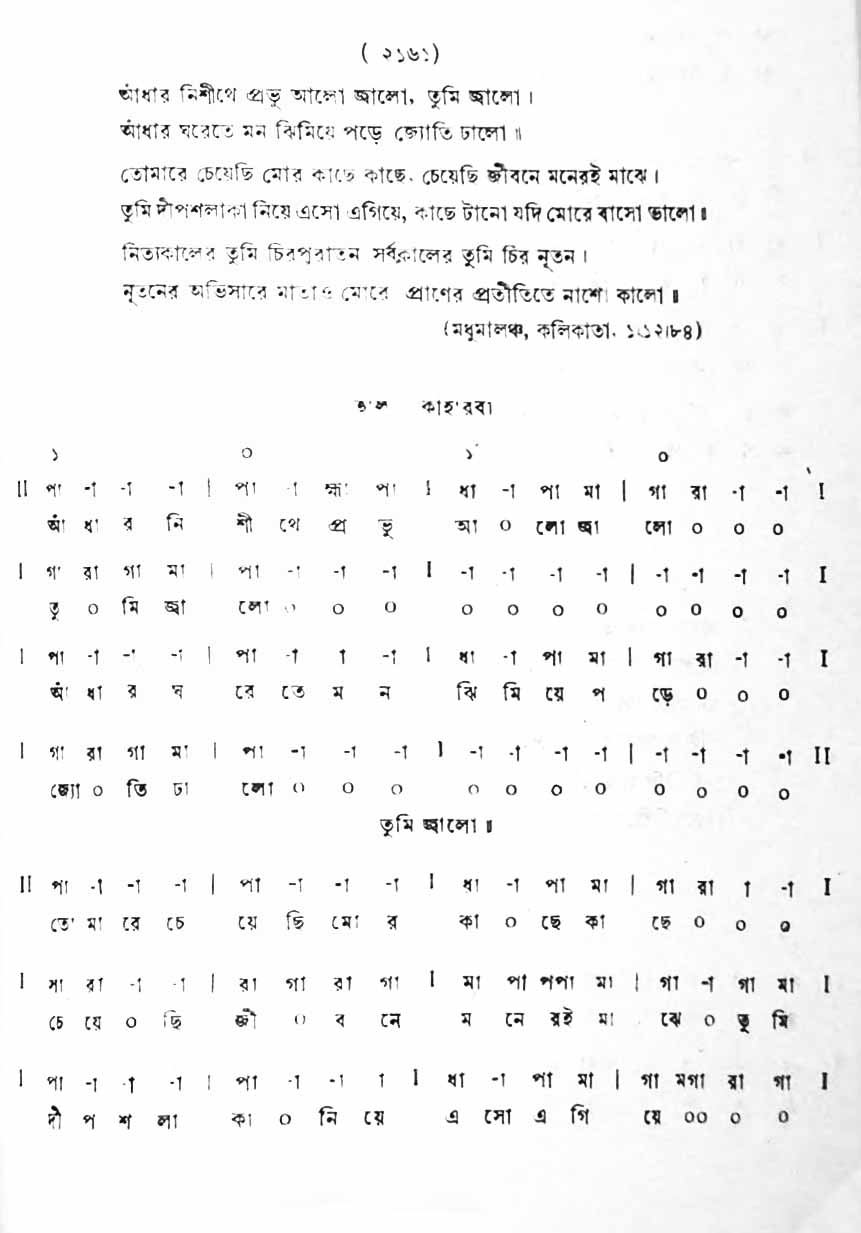 ( ২১৬১)
আঁধার নিশীথে প্রভু আলো জ্বালো, তুমি জ্বালো।
আঁধার ঘরেতে মন ঝিমিয়ে পড়ে জ্যোতি ঢালো॥
তোমারে চেয়েছি মোর কাছে কাছে, চেয়েছি জীবনে মনেরই মাঝে।
তুমি দীপশলাকা নিয়ে এসো এগিয়ে, কাছে টানো যদি মোরে বাসো ভালো॥
নিত্যকালের তুমি চিরপুরাতন সর্বকালের তুমি চির নূতন।
নূতনের অভিসারে মাতাও মোরে প্রাণের প্রতীতিতে নাশো কালো॥
(মধুমালঞ্চ, কলিকাতা, ১।১২।৮৪)
তাল কাহারবা
১ ০ ১ ০
II পা -া -া -া | পা -া হ্মা পা I ধা -া পা মা | গা রা -া -া I
আঁ ধা র নি শী থে প্র ভু আ ০ লো জ্বা লো ০ ০ ০
I গা রা গা মা | পা -া -া -া I -া -া -া -া | -া -া -া -া I
তু ০ মি জ্বা লো ০ ০ ০ ০ ০ ০ ০ ০ ০ ০ ০
I পা -া -া -া | পা -া া -া I ধা -া পা মা | গা রা -া -া I
আঁ ধা র ঘ রে তে ম ন ঝি মি য়ে প ড়ে ০ ০ ০
I গা রা গা মা | পা -া -া -া I -া -া -া -া | -া -া -া -া II
জ্যো ০ তি ঢা লো ০ ০ ০ ০ ০ ০ ০ ০ ০ ০ ০
তুমি জ্বালো॥
II পা -া -া -া | পা -া -া -া I ধা -া পা মা | গা রা া -া I
তো মা রে চে য়ে ছি মো র কা ০ ছে কা ছে ০ ০ ০
I সা রা -া -া | রা গা রা গা I মা পা পপা মা | গা -া গা মা I
চে য়ে ০ ছি জী ০ ব নে ম নে রই মা ঝে ০ তু মি
I পা -া -া -া | পা -া -া া I ধা -া পা মা | গা মগা রা গা I
দী প শ লা কা ০ নি য়ে এ সো এ গি য়ে ০০ ০ ০